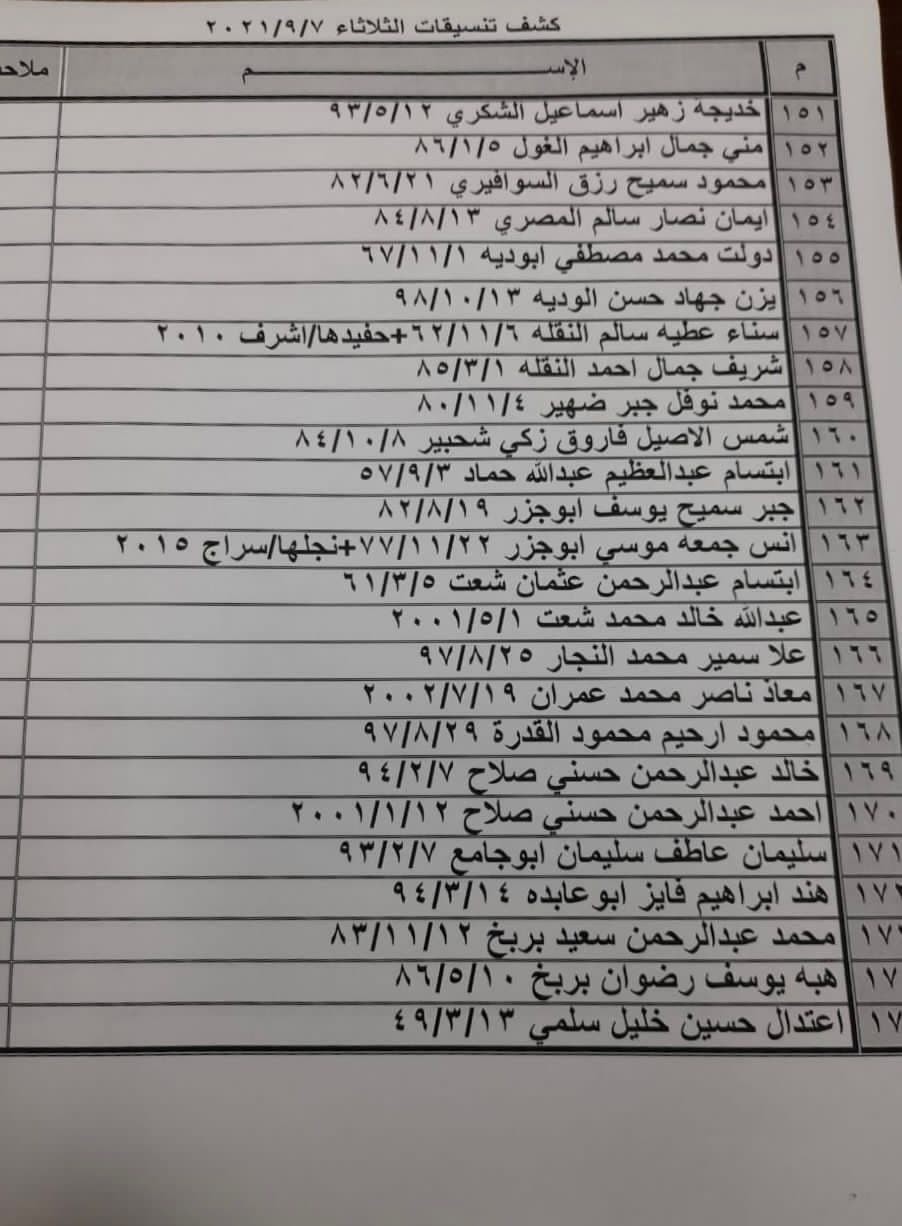 كشف تنسيقات الثلاثاء ٢٠٢١/٩/٧
م الإســـــــــــــــم
١٥١ خديجة زهير اسماعيل الشكري ٩٣/٥/١٢
١٥٢ مني جمال ابراهيم الغول ٨٦/١/٥
١٥٣ محمود سميح رزق السوافيري ٨٢/٦/٢١
١٥٤ ايمان نصار سالم المصري ٨٤/٨/١٣
١٥٥ دولت محمد مصطفي ابوديه ٦٧/١١/١
١٥٦ يزن جهاد حسن الوديه ٩٨/١٠/١٣
١٥٧ سناء عطيه سالم النقله ٦٢/١١/٦+حفيدها/اشرف ٢٠١٠
١٥٨ شريف جمال احمد النقله ٨٥/٣/١
١٥٩ محمد نوفل جبر ضهير ٨٠/١١/٤
١٦٠ شمس الاصيل فاروق زكي شحبير ٨٤/١٠/٨
١٦١ ابتسام عبدالعظيم عبدالله حماد ٥٧/٩/٣
١٦٢ جبر سميح يوسف ابوجزر ٨٢/٨/١٩
١٦٣ انس جمعه موسي ابوجزر ٧٧/١١/٢٢+نجلها/سراج ٢٠١٥
١٦٤ ابتسام عبدالرحمن عثمان شعت ٦١/٣/٥
١٦٥ عبدالله خالد محمد شعت ٢٠٠١/٥/١
١٦٦ علا سمير محمد النجار ٩٧/٨/٢٥
١٦٧ معاذ ناصر محمد عمران ٢٠٠٢/٧/١٩
١٦٨ محمود ارحيم محمود القدرة ٩٧/٨/٢٩
١٦٩ خالد عبدالرحمن حسني صلاح ٩٤/٢/٧
١٧٠ احمد عبدالرحمن حسني صلاح ٢٠٠١/١/١٢
١٧١ سليمان عاطف سليمان ابوجامع ٩٣/٢/٧
١٧٢ هند ابراهيم فايز ابوعابده ٩٤/٣/١٤
محمد عبدالرحمن سعيد بربخ ٨٣/١١/١٢
هبه يوسف رضوان بربخ ٨٦/٥/١٠
اعتدال حسين خليل سلمي ٤٩/٣/١٣